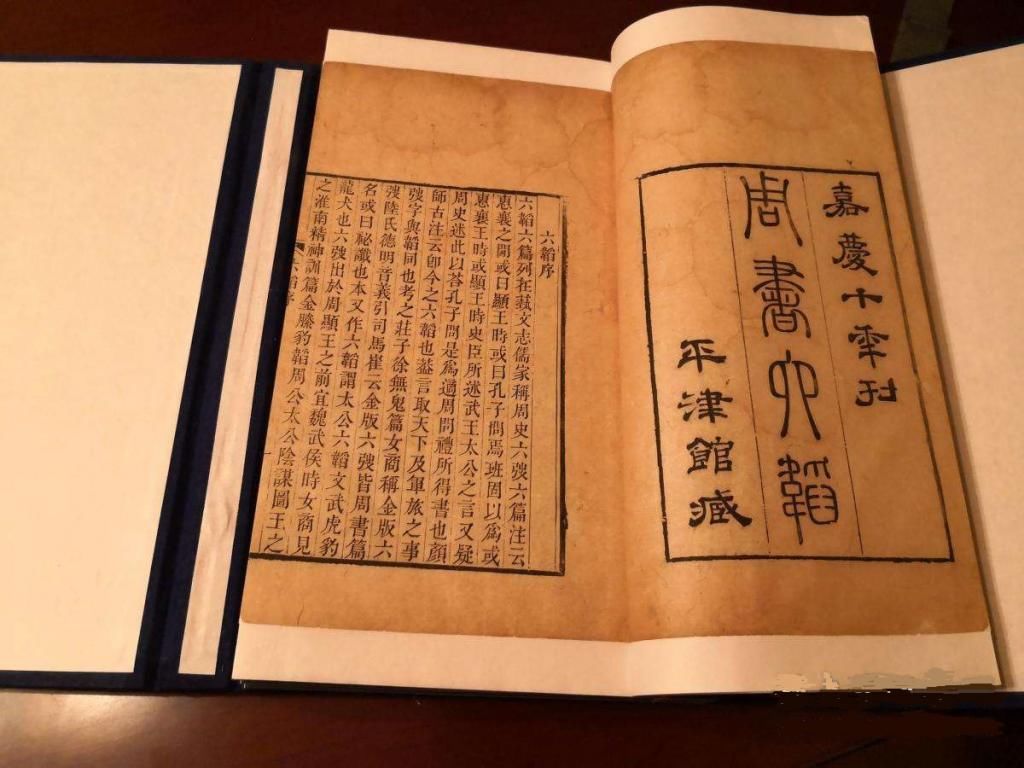 嘉慶十年刊
周書六韜
平津館臧
六韜序
六韜六篇列在蓺文志儒家稱周史六弢六篇注云
惠襄之閒或曰顯王時或曰孔子問焉班固以爲或
惠襄王時或顯王時史臣所述武王太公之言又疑
周史述此以荅孔子問是爲適周問禮所得書也顏
師古注云卽今之六韜也葢言取天下及軍旅之事
弢字與韜同也考之莊子徐無鬼篇女商稱金版六
弢陸氏德明音義引司馬崔云金版六弢皆周書篇
名或曰祕讖也本又作六韜謂太公六韜文武虎豹
龍犬也六弢出於周顯王之前宜魏武侯時女商見
之淮南精神訓篇金縢豹韜周公太公陰謀圖王之
六韜序